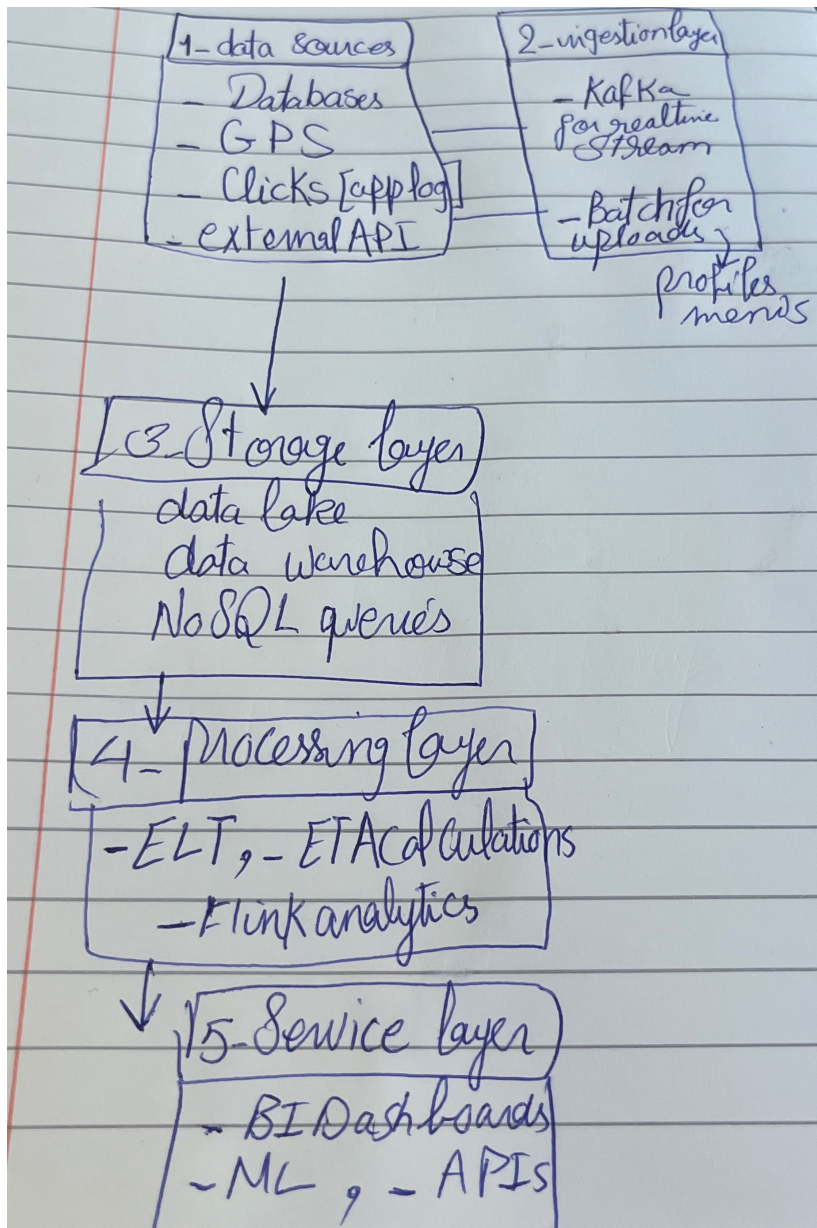 1- data sources
- Databases
- GPS
- Clicks [app log]
- external API
2- ingestion layer
- Kafka
for realtime
stream
- Batch for
uploads
profiles
menus
3- Storage layer
data lake
data warehouse
NoSQL queries
4- processing layer
- ELT, - ETA calculations
- Flink analytics
5- Service layer
- BI Dashboards
- ML, - APIs